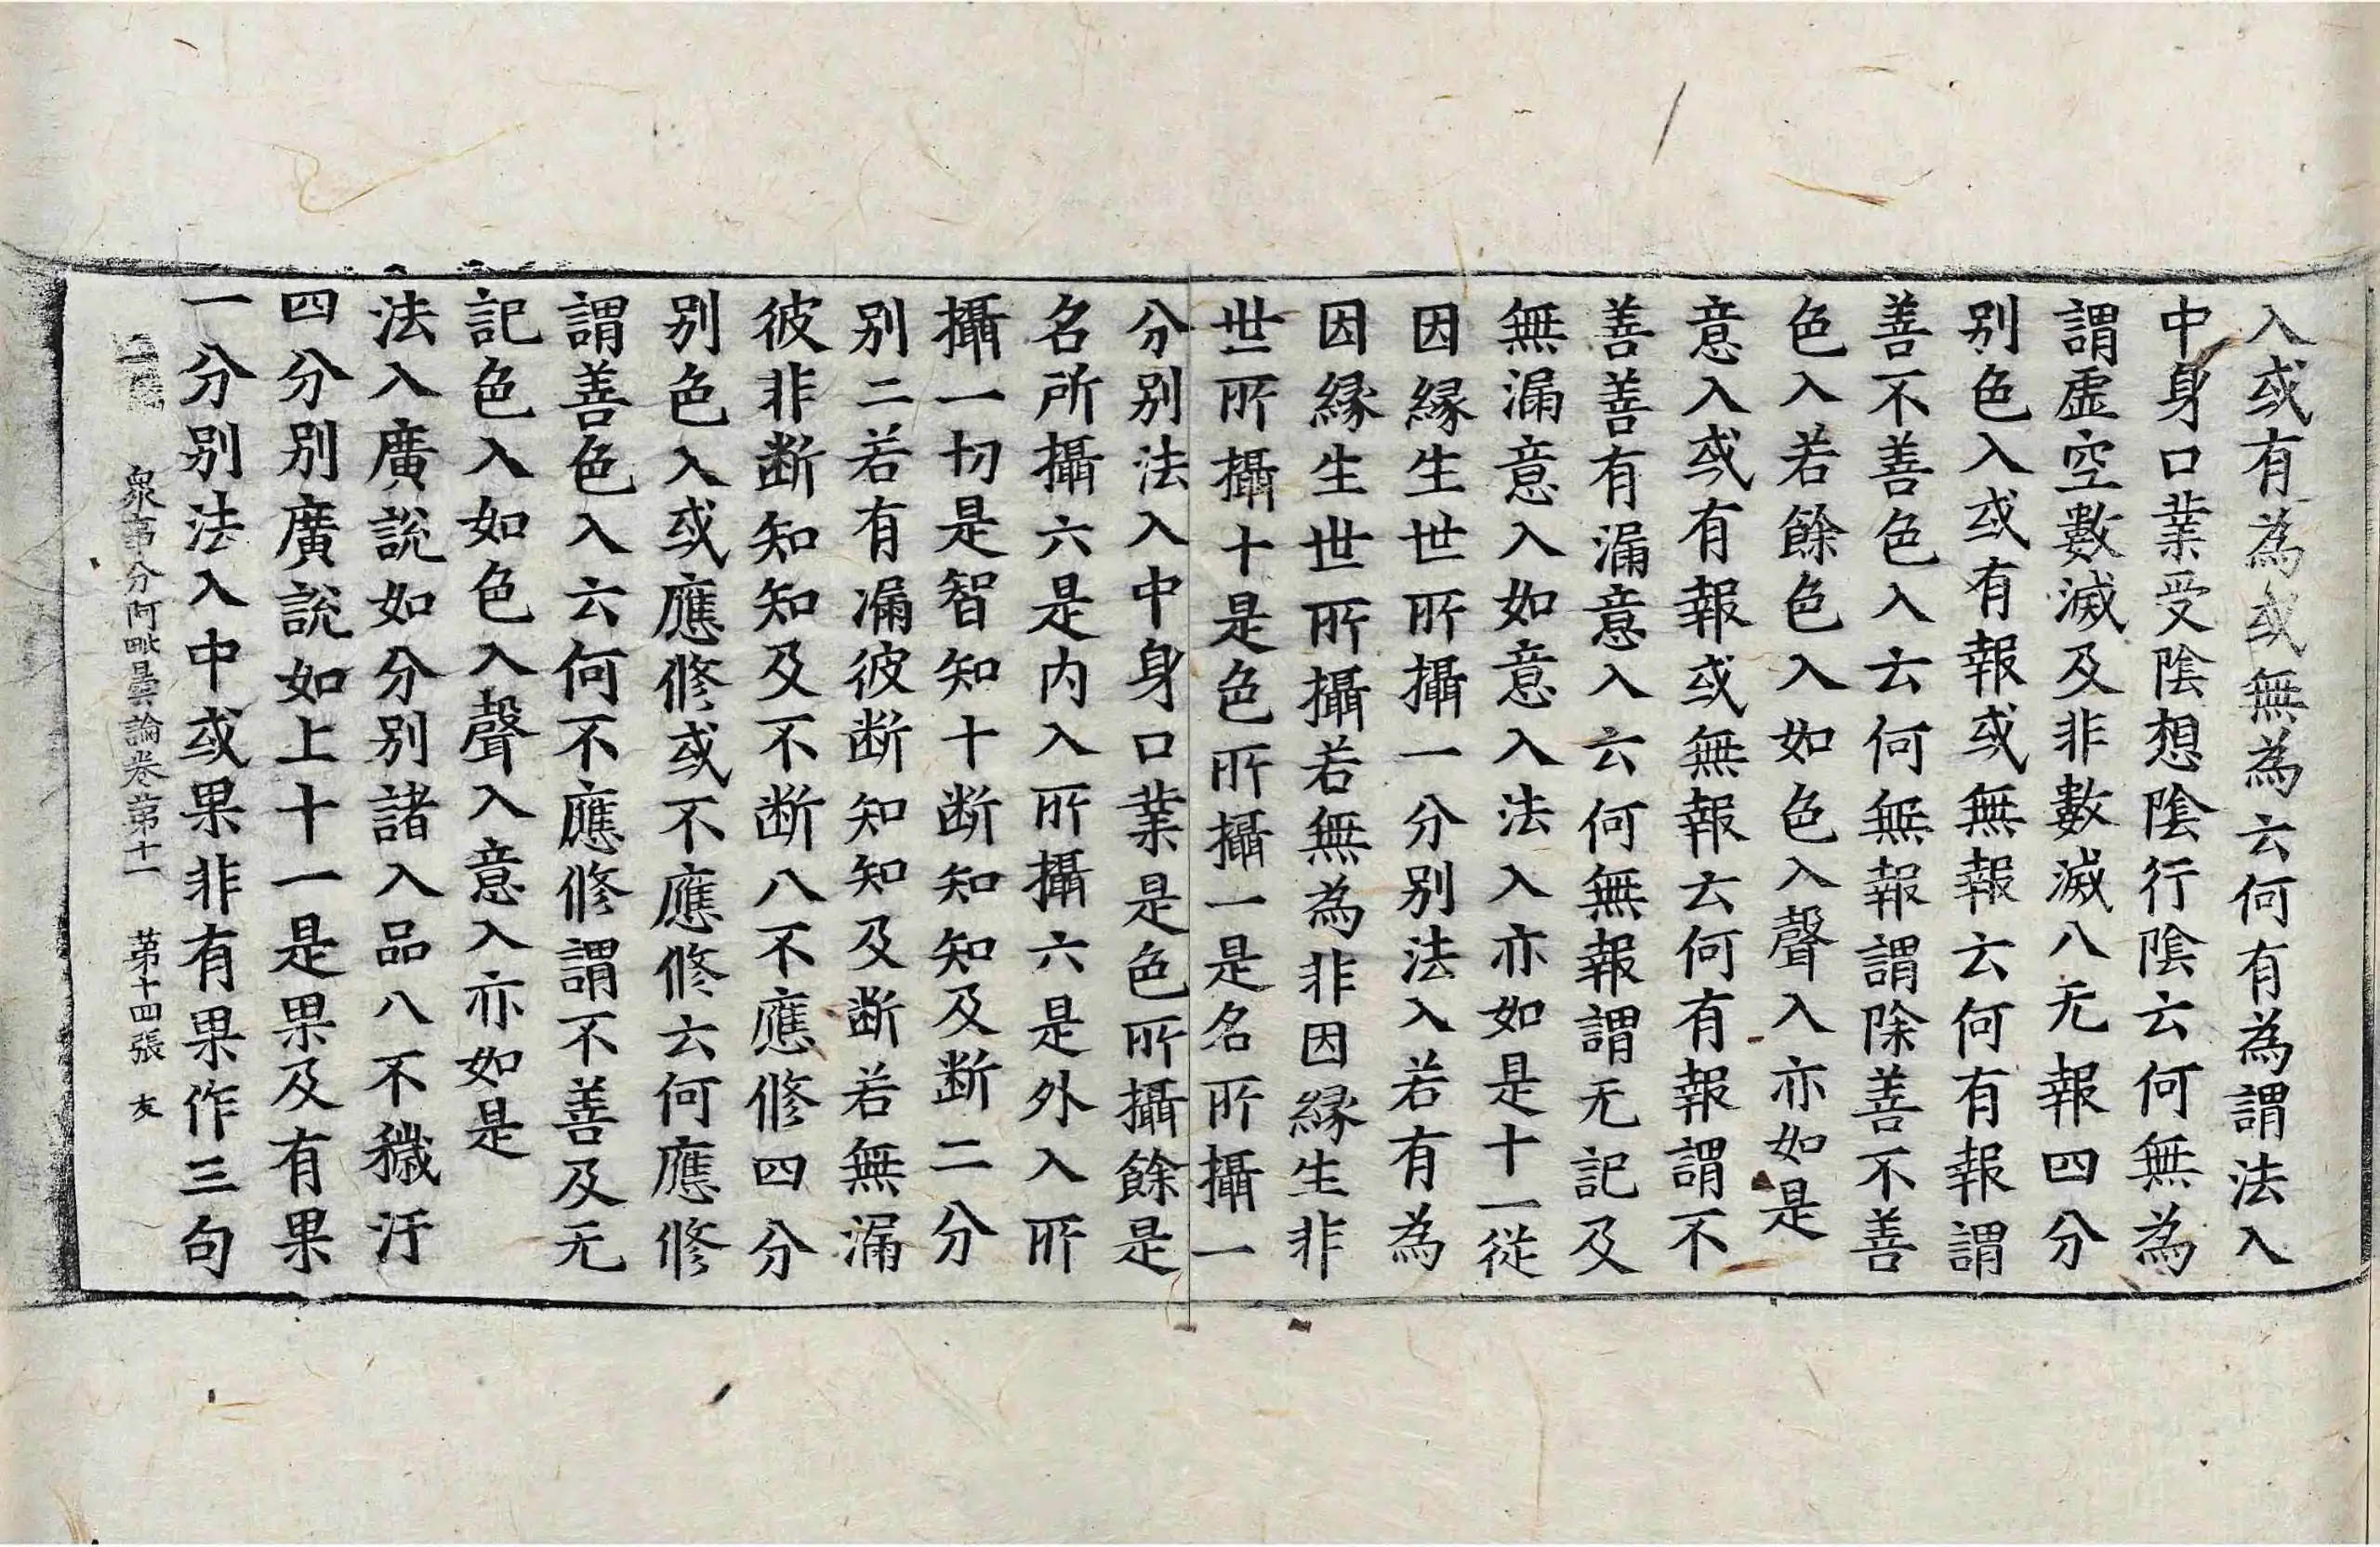 入或有為或無為云何有為謂法入
中身口業受陰想陰行陰云何無為
謂虛空數滅及非數滅八无報四分
别色入或有報或無報云何有報謂
善不善色入云何無報謂除善不善
色入若餘色入如色入聲入亦如是
意入或有報或無報云何有報謂不
善善有漏意入云何無報謂无記及
無漏意入如意入法入亦如是十一從
因緣生世所攝一分别法入若有為
因緣生世所攝若無為非因緣生非
世所攝十是色所攝一是名所攝一
分别法入中身口業是色所攝餘是
名所攝六是内入所攝六是外入所
攝一切是智知十断知知及断二分
别二若有漏彼断知知及断若無漏
彼非断知知及不断八不應修四分
别色入或應修或不應修云何應修
謂善色入云何不應修謂不善及无
記色入如色入聲入意入亦如是
法入廣說如分别諸入品八不穢汙
四分别廣說如上十一是果及有果
一分别法入中或果非有果作三句
衆事分阿毗曇論卷第十一 第十四張 友